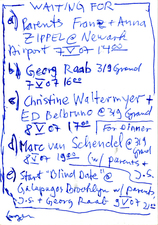 WAITING FOR
a) Parents Franz + Anna
ZIPPEL @ Newark
Airport 7 V 07 1400
b) Georg Raab 319 Grand
7 V 07 1600
c) Christine Waltermyer +
ED Belbruno @ 319 Grand
8 V 07 1730 (For Dinner
d) Marc van Schendel @ 319
8 V 07 1900 (w/ parents +
J.S.
e) Start "Blind Date" @
Galapagos Brooklyn w/ parents
J.S + Georg Raab 9 V 07